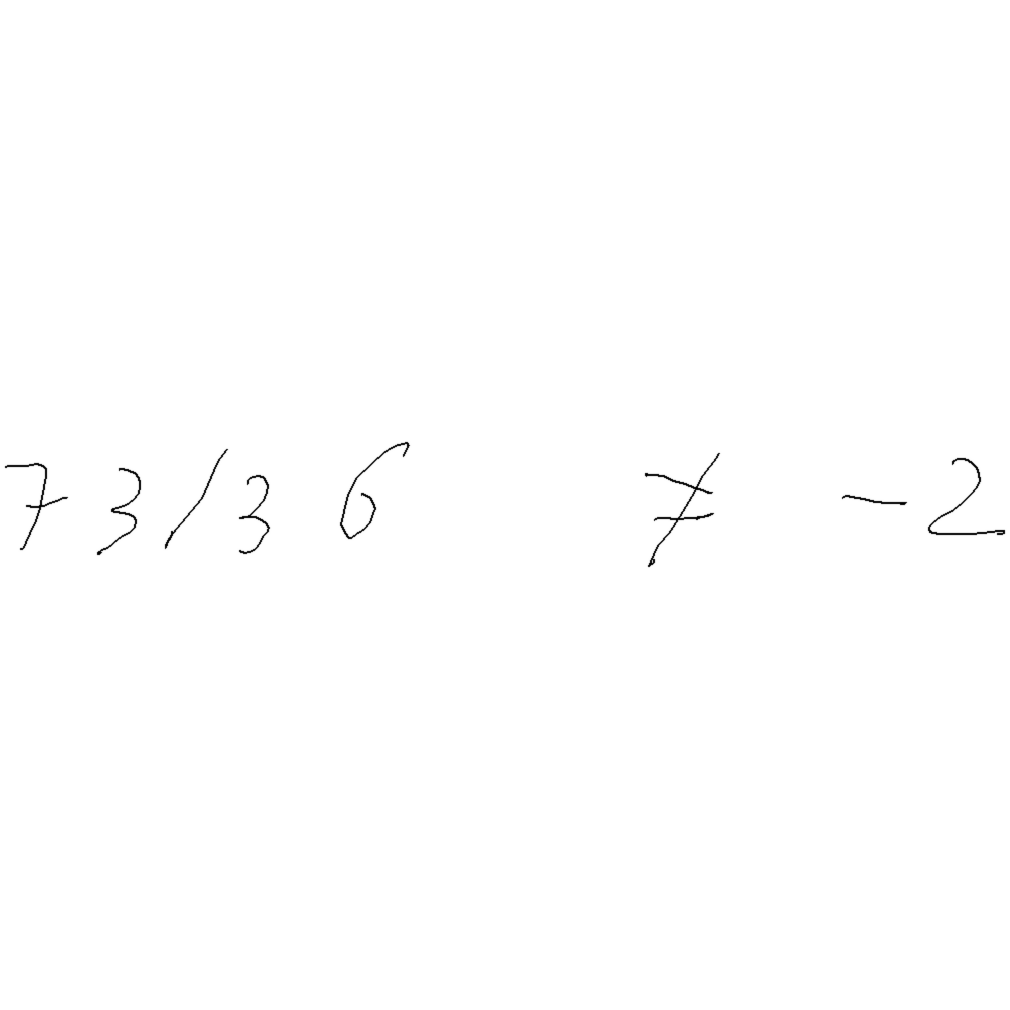 73/36 ≠ -2